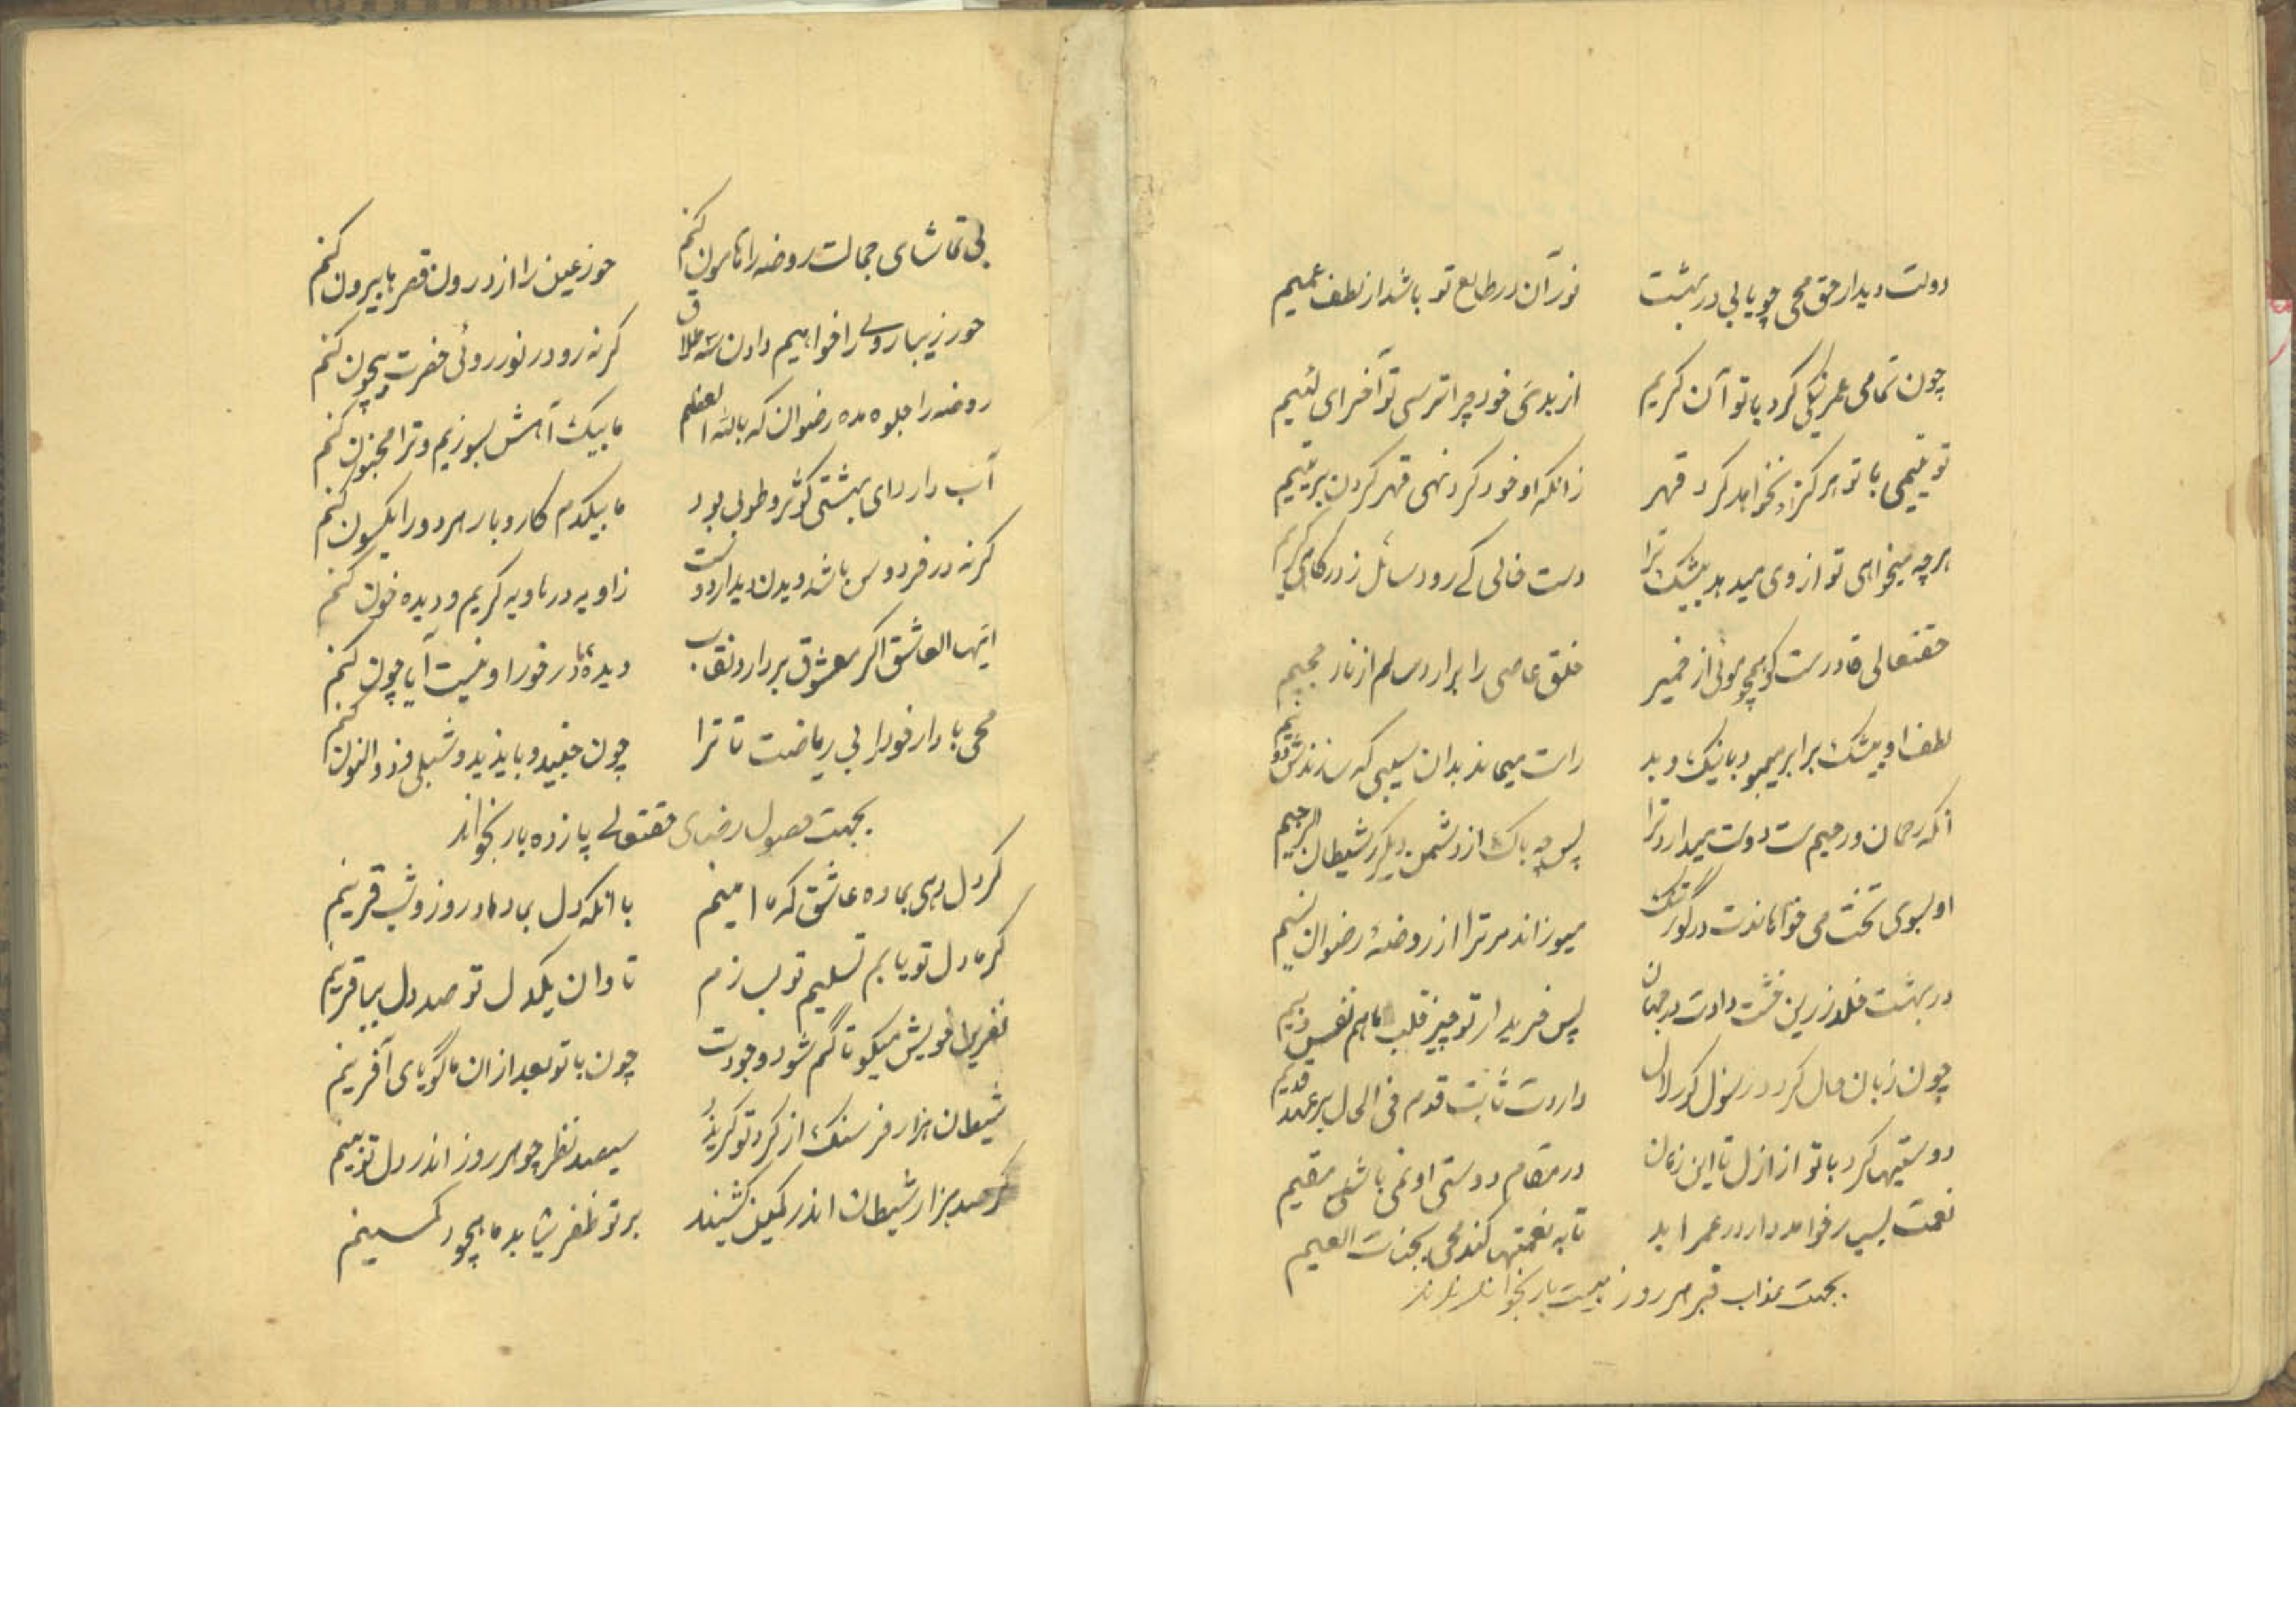 دولت دیدار حق محی چو یابی در بهشت نور آن در طالع تو باشد از لطف عمیم
چون تمامی عمر نیکی کرد با تو آن کریم از بدئ خود چرا ترسی تو آخر ای لئیم
تو یتیمی با تو هرگز او نخواهد کرد قهر زانکه او خود کرد نهی قهر کردن بر یتیم
هر چه میخواهی تو از وی میدهد بیشک ترا دست خالی کے رود سائل ز درکاه کریم
حقتعالی قادرست کو همچو موئی از خمیر خلق عاصی را برارد سالم از نار جحیم
لطف او بیشک برابر میبود با نیک و بد راست میماند بدان سیبی که سازندش دو نیم
انکه رحمان و رحیم ست دوست میدارد ترا پس چه باک از دشمن دیگر شیطان الرجیم
او بسوی تخت می خواباندت در گور تنگ میوزاند مر ترا از روضهٔ رضوان نسیم
در بهشت خلد زرین خشت دادت در جهان پس خریدار تو چیز قلب ما هم نفس
چون زبان حال کردد در سؤال کور لال داردت ثابت قدم فی الحال بر عهد قدیم
دوستیها کرد با تو از ازل تا این زمان در مقام دوستی او نمی باشی مقیم
نعمت بسیار خواهد داد در عمر ابد تا به نعمتها کند محی بجنات النعیم
بجهت عذاب قبر هر روز بیست بار بخواند
بی تماشای جمالت روضه را هامون کنم حور عین را از درون قصرها بیرون کنم
حور زیبا روے را خواهیم دادن سه طلاق کر نه رو در نور روئی حضرت بیچون کنم
روضه را جلوه مده رضوان که بالله العظیم ما بیک آهش بسوزیم و ترا مجنون کنم
آب دار دای بهشتی کوثر و طوبی بود ما بیکدم کار و بار هر دو را یکسون کنم
کر نه در فردوس باشد دیدن دیدار دوست زاویه در هاویه کریم و دیده خون کنم
ایها العاشق اکر معشوق بردارد نقاب دیدهٔ ما در خور او نیست آیا چون کنم
محی باد ار خود را بی ریاضت تا ترا چون جنید و بایزید و شبلی و ذوالنون کنم
بجهت حصول رضای حقتعالے پانزده بار بخواند
کر دل دهی بما ده عاشق که ما امینم با انکه دل بما داد روز و شب قرینم
کر ما دل تو یابم تسلیم تو بسازم تاوان یکدل تو صد دل بیافرینم
نفرین خویش میکو تا گم شود وجودت چون با تو بعد ازان ما گویای آفرینم
شیطان هزار فرسنک از کرد تو کریزد سیصد نظر چو هر روز اندر دل تو بینم
کر صد هزار شیطان اندر کمین نشینند بر تو ظفر نیابد ما چو در کمینم